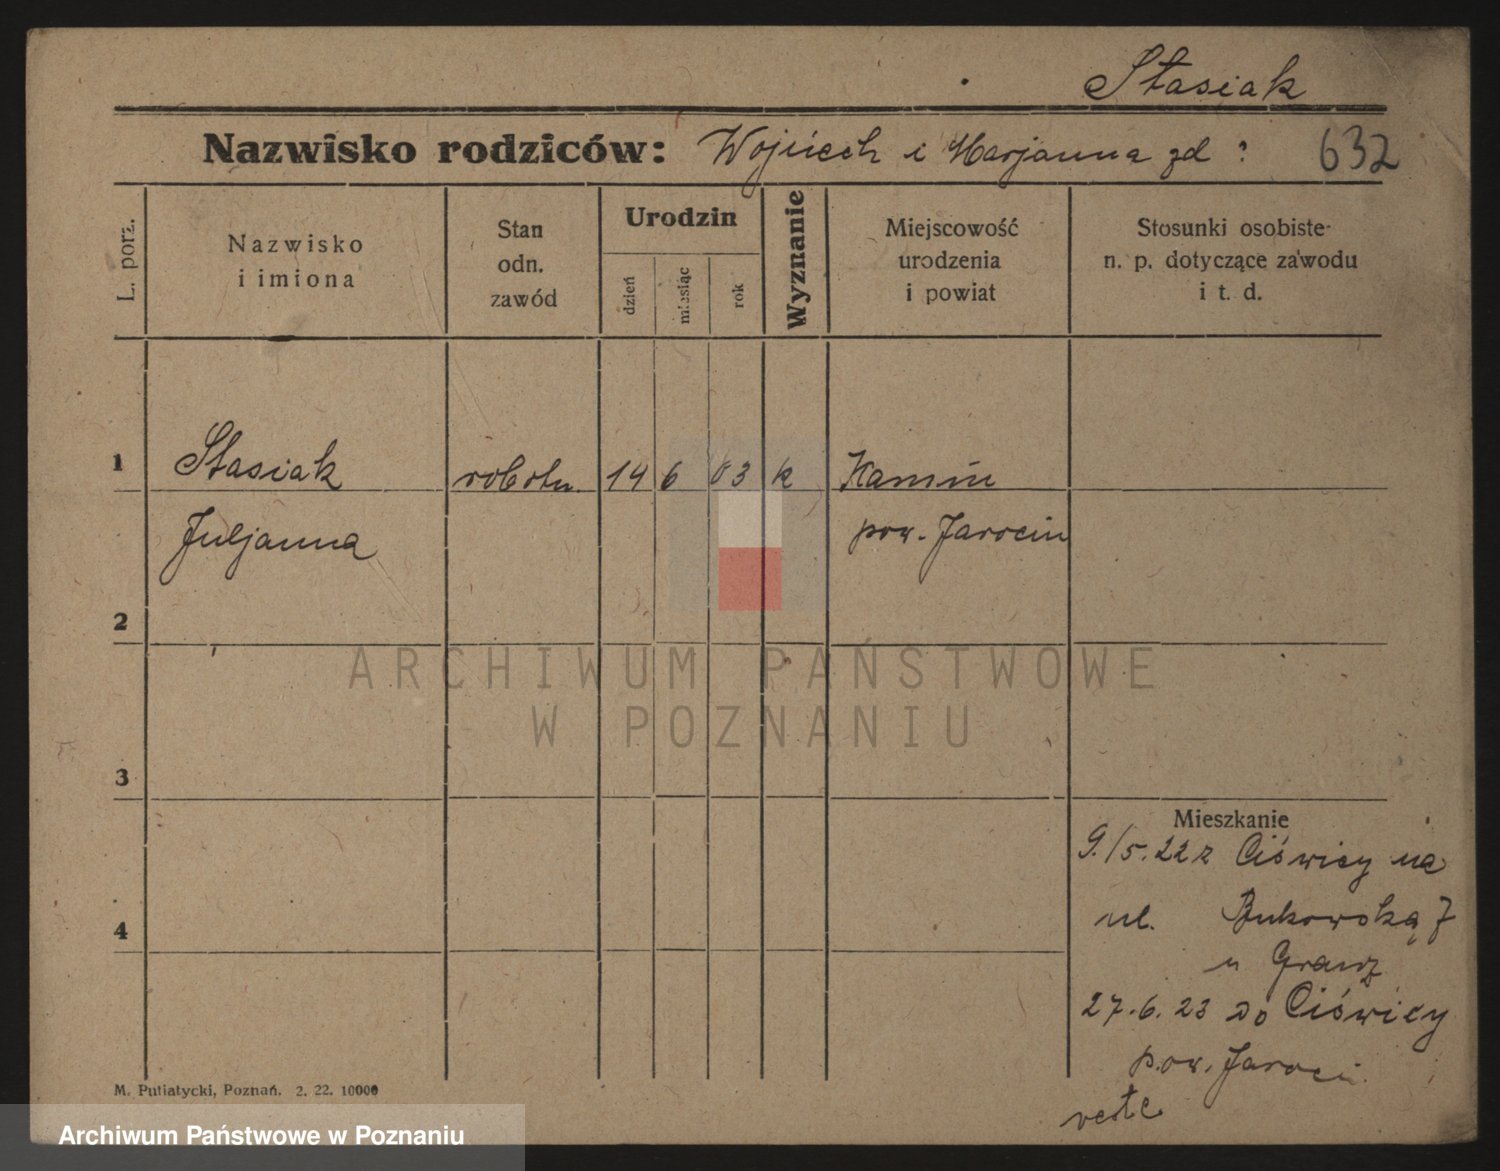 Stasiak
Nazwisko rodziców: Wojciech i Marjanna zd ? 632
L. porz.
Nazwisko
i imiona
Stan
odn.
zawód
Urodzin
dzień
miesiąc
rok
Wyznanie
Miejscowość
urodzenia
i powiat
Stosunki osobiste
n. p. dotyczące zawodu
i t. d.
1 Stasiak robotn. 14 6 03 k Kamin
Juljanna pow. Jarocin
2
3
4
Mieszkanie
9./5. 22 z Ciświcy na
ul. Bukowską 7
u
27. 6. 23 do Ciświcy
pow. Jarocin
M. Putiatycki, Poznań. 2. 22. 10000
ARCHIWUM PAŃSTWOWE
W POZNANIU
Archiwum Państwowe w Poznaniu